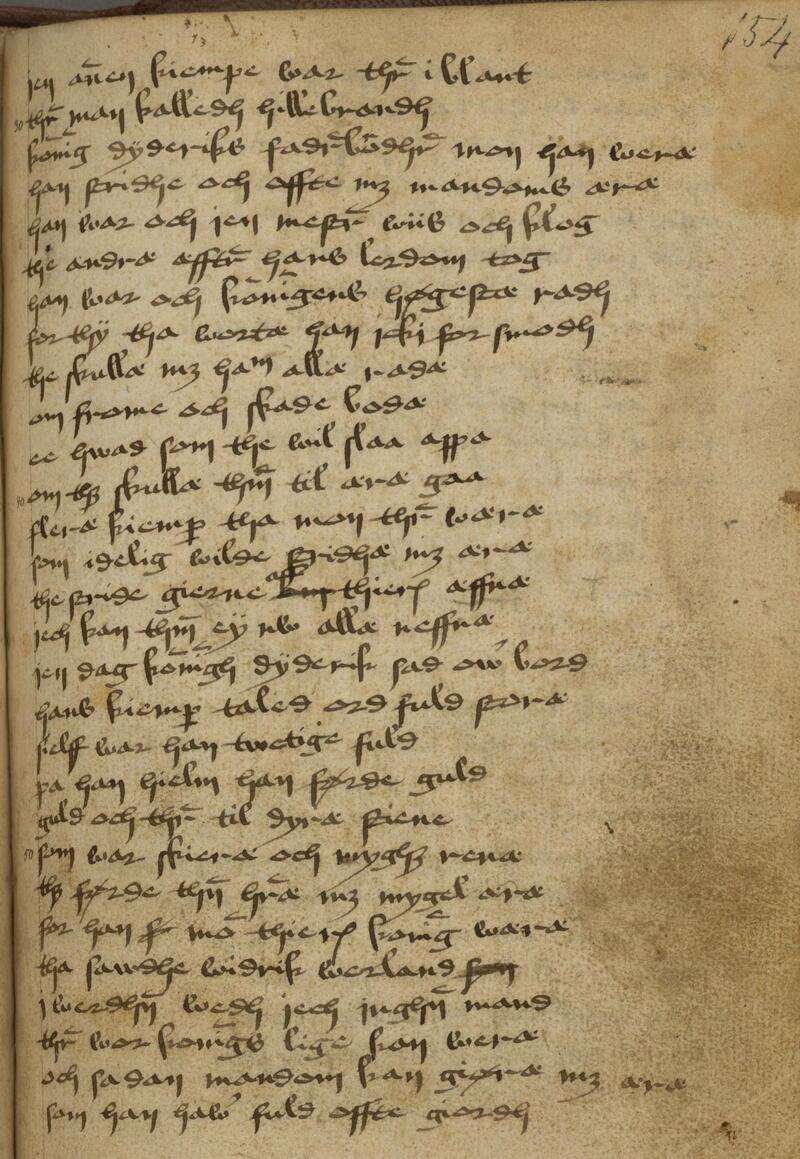 154
jen añen kiempe war thr̄ i blant
30 thr̄ man kalledh hillebrandh
kōnig dyderiks fadr̄ brodhr̄ mon han weræ
han stridhe och offte mz mandoms æræ
han war och jen mestr̄ wiis och klog
the andræ æfftr̄ hans lerdom tog
han war och kōnigens høgestæ radh
for thÿ tha wortæ han icki for smodh
the skullæ mz hañ allæ radæ
om frome och skade bodæ
ee hwad som the wil slaa appa
40 om thz skullæ thm̄ til æræ gaa
fleræ kiemp̄ tha mon thr̄ wæræ
som idelig wilde stridhæ mz æræ
the stride gierne aff thieris æffnæ
jech kan thm̄ eÿ nw allæ neffnæ
jen dag kōnigh dyderik sad ow̄ bord
hans kiemp̄ taled ord fuld storæ
self war han twctige fuld
pa han hielm han førde guld
guld och thr̄ til dyræ stene
50 som war skieræ och mygh̄ renæ
thz førde thn̄ hr̄æ mz mygel æræ
for han mō thieris konig wæræ
tha sawdhe widrik werland
j werdhn̄ wedh jech jnghn̄ mand
thr̄ wor konigs lige kan weræ
och sadan mandom kan giøræ mz æræ
som han haw̄ fuld offte giordh